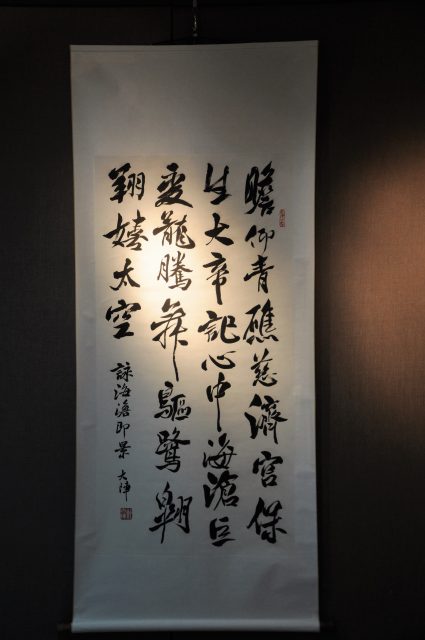 瞻仰青礁慈濟宮保
生大帝記心中海滄巨
變龍騰舞鷗鷺翱
翔嬉太空
詠海滄即景 大